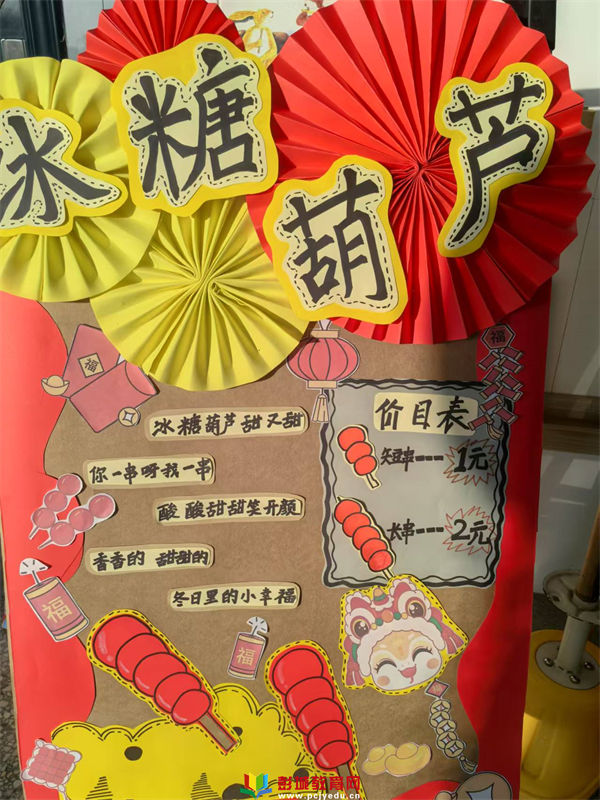 冰糖葫芦
福
福
冰糖葫芦甜又甜
你一串呀我一串
酸酸甜甜笑开颜
香香的 甜甜的
冬日里的小幸福
价目表
短串---1元
长串---2元
福
福
彭城教育网
www.pcjyedu.cn